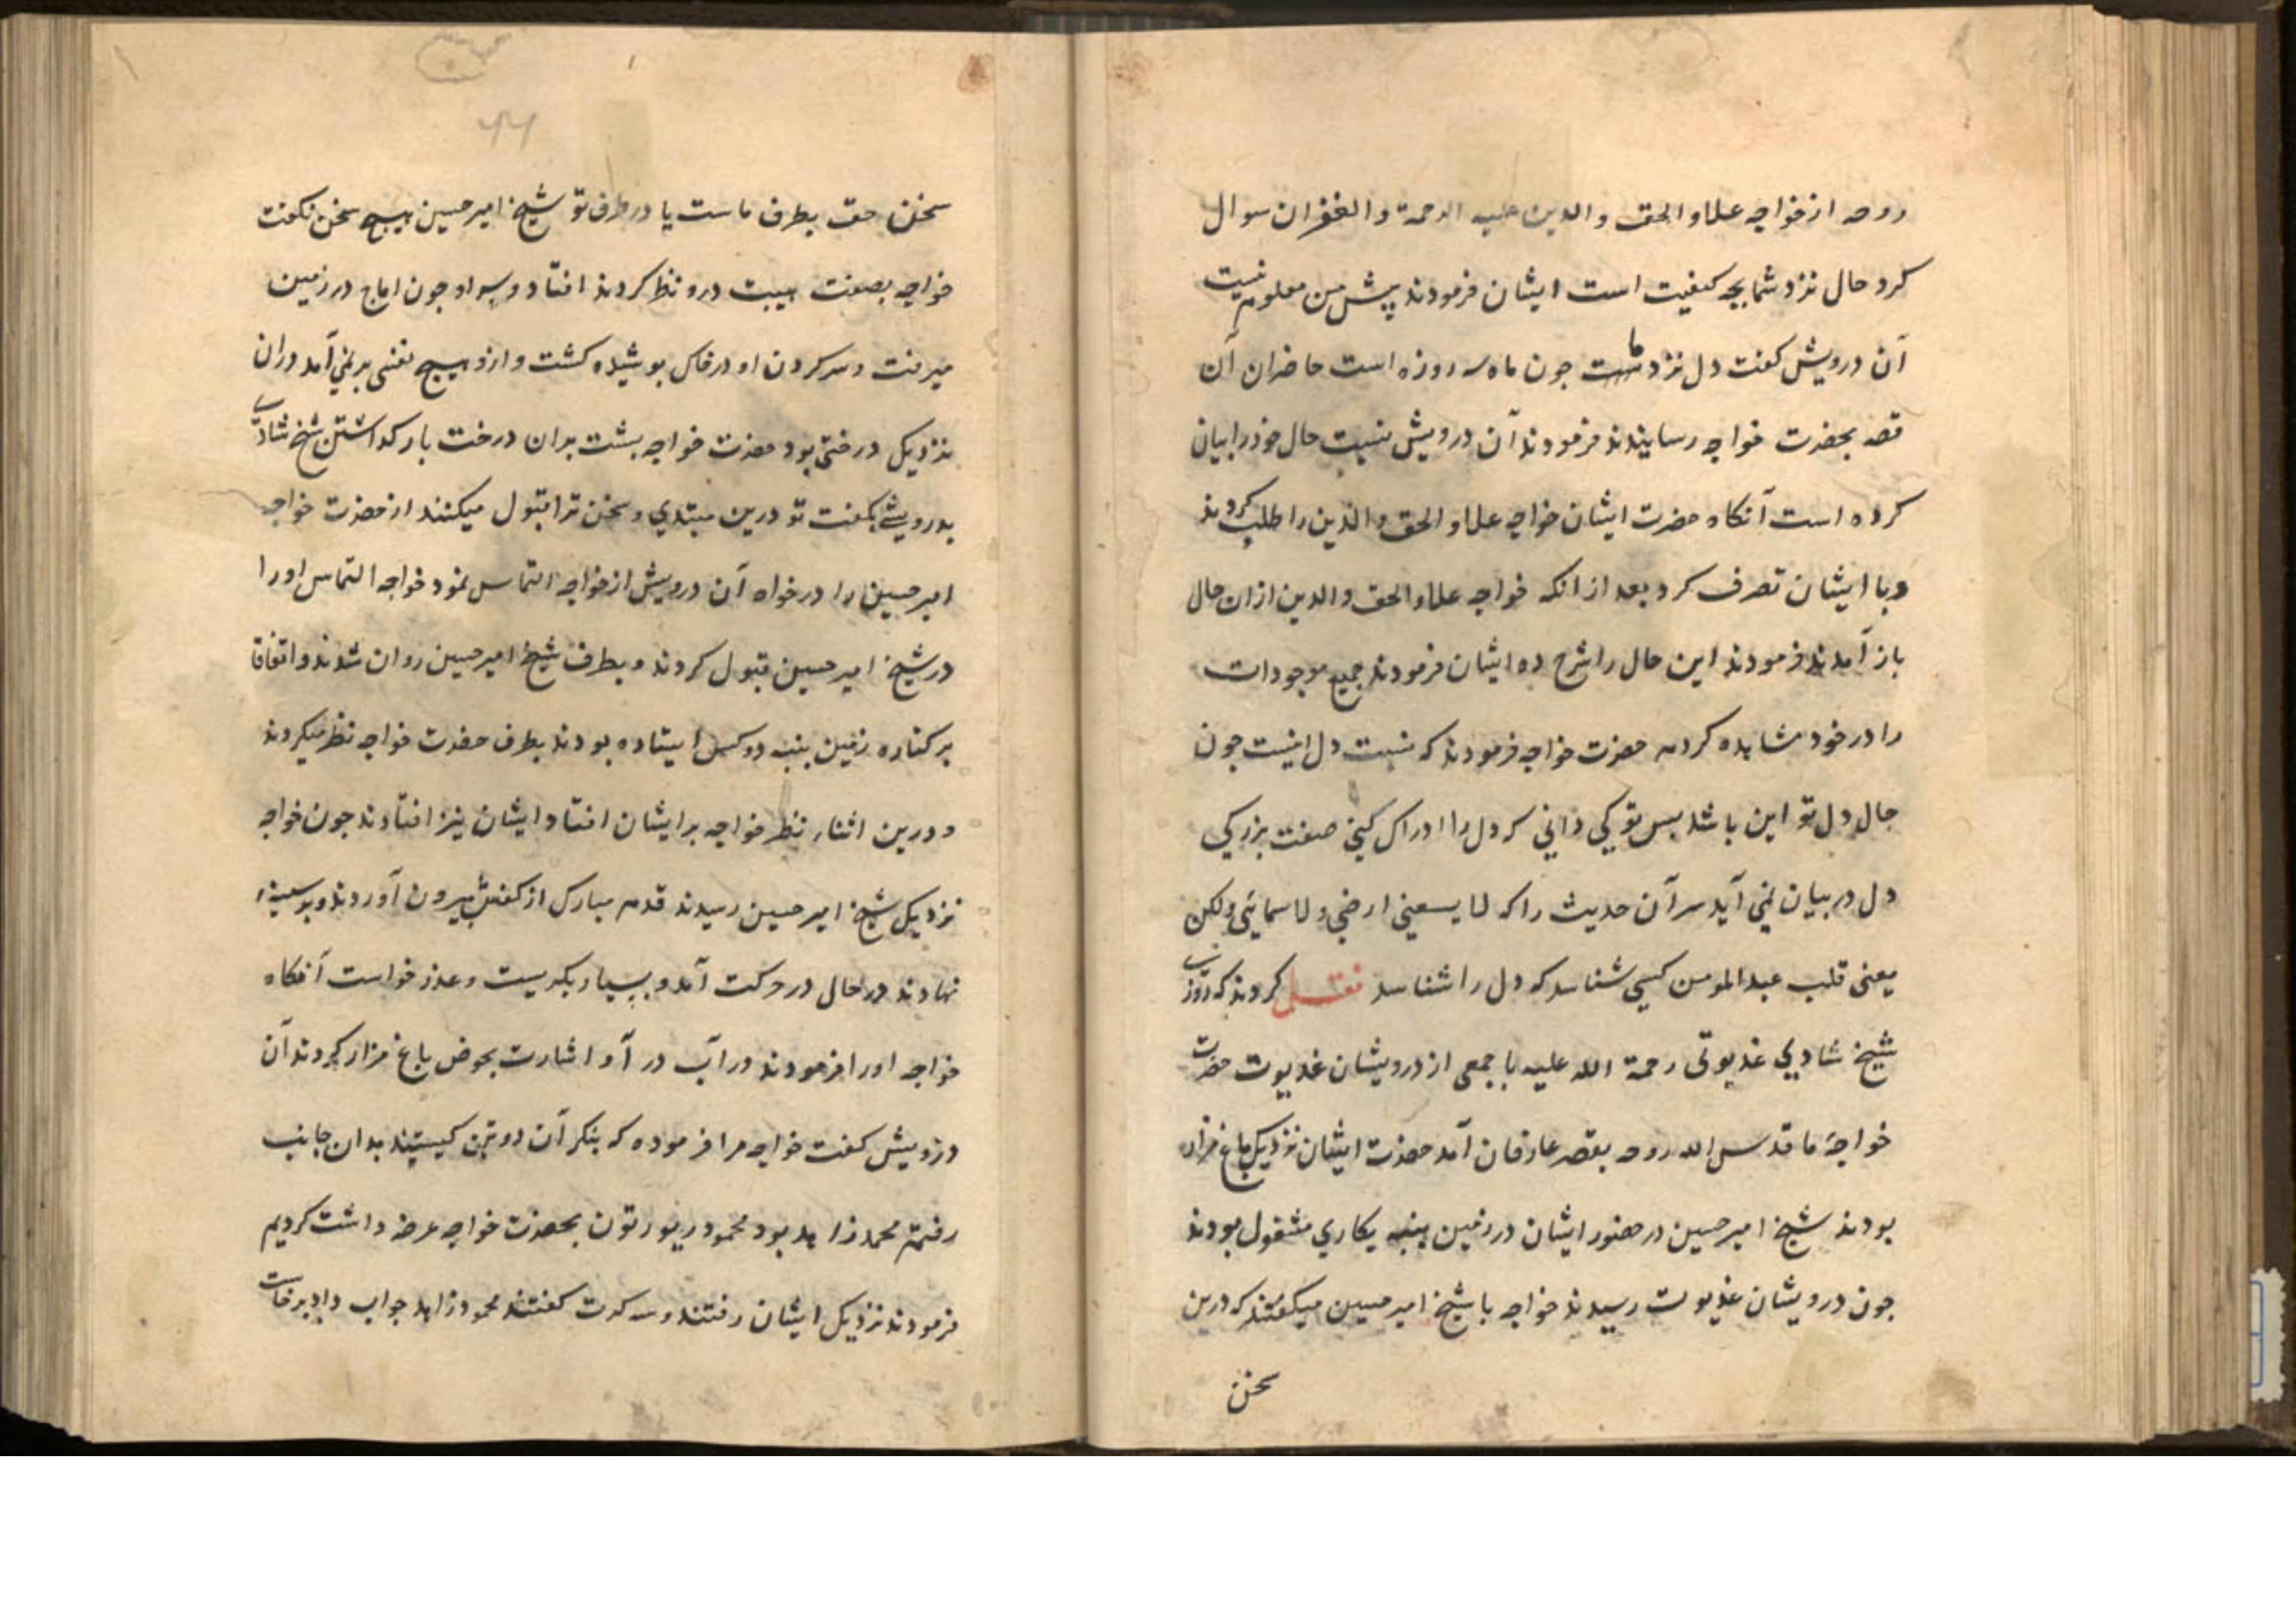 روحه از خواجه علاو الحق و الدین علیه الرحمة و الغفران سوال
کرد حال نزد شما بچه کیفیت است ایشان فرمودند پیش من معلوم نیست
آن درویش کفت دل نزد ما ست جون ماه سه روزه است حاضران آن
قصه بحضرت خواجه رسانیدند فرمودند آن درویش نسبت حال خود را بیان
کرده است آنکاه حضرت ایشان خواجه علاو الحق و الدین را طلب کردند
و با ایشان تصرف کرد بعد از انکه خواجه علاو الحق و الدین ازان حال
باز آمدند فرمودند این حال را شرح ده ایشان فرمودند جمیع موجودات
را در خود مشاهده کردم حضرت خواجه فرمودند که نسبت دل اینست جون
حال دل تو این باشد بس تو کی دانی که دل را ادراک کنی صفت بزرکی
دل در بیان نمی آید سر آن حدیث را که لا یسعنی ارضی و لا سمائی و لکن
یعنی قلب عبد المومن کسی شناسد که دل را شناسد نقل کردند که روزی
شیخ شادی غدیوتی رحمة الله علیه با جمعی از درویشان غدیوت حضرت
خواجۀ ما قدس الله روحه بقصر عارفان آمد حضرت ایشان نزدیک باغ مزار
بودند شیخ امیر حسین در حضور ایشان در زمین پنبه بکاری مشغول بودند
جون درویشان غدیوت رسیدند خواجه با شیخ امیر حسین میکفتند که درین
سخن
۷۷
سخن حق بطرف ماست یا در طرف تو شیخ امیر حسین هیچ سخن نکفت
خواجه بصفت هیبت درو نظر کردند افتاد و سر او جون اماج در زمین
میرفت و سر کردن او در خاک بوشیده کشت و ازو هیچ نفسی بر نمی آمد دران
نزدیک درختی بود حضرت خواجه بشت بدان درخت باز کذاشتن شیخ شادی
بدرویشی بکفت تو درین مبتدی و سخن ترا قبول میکنند از حضرت خواجه
امیر حسین را درخواه آن درویش از خواجه التماس نمود خواجه التماس او را
در شیخ امیر حسین قبول کردند و بطرف شیخ امیر حسین روان شدند و اتفاقا
بر کناره زمین پنبه دو کس ایستاده بودند بطرف حضرت خواجه نظر میکردند
و درین اثنا نظر خواجه بر ایشان افتاد و ایشان نیز افتادند جون خواجه
نزدیک شیخ امیر حسین رسیدند قدم مبارک از کفش بیرون آوردند و بر سینه
نهادند در حال در حرکت آمد و بسیار بکریست و عذر خواست آنکاه
خواجه او را فرمودند در آب در آ و اشارت بحوض باغ مزار کردند آن
درویش کفت خواجه مرا فرموده که بنکر آن دو تن کیستند بدان جانب
رفتم محمد زاهد بود محمود ریورتون بحضرت خواجه عرضه داشت کردیم
فرمودند نزدیک ایشان رفتند و سه کرت کفتند محمود زاهد جواب داد برخاست